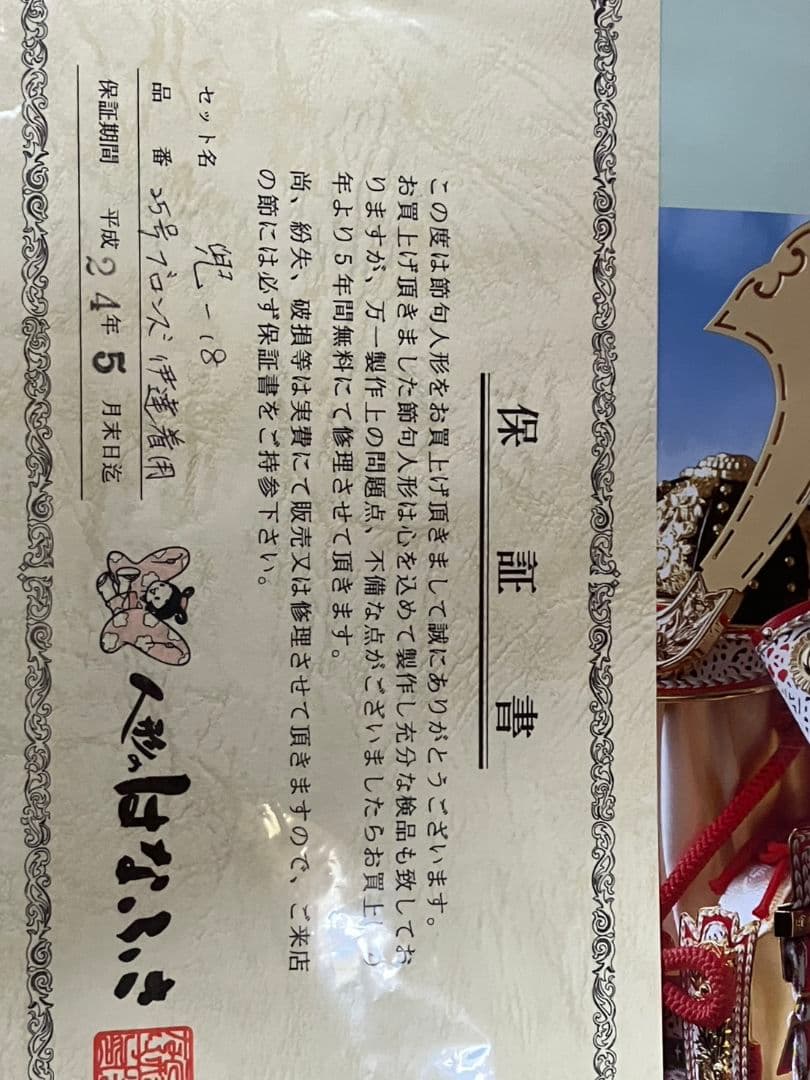 保証書
この度は節句人形をお買上げ頂きまして誠にありがとうございます。
お買上げ頂きました節句人形は心を込めて製作し充分な検品も致してお
りますが、万一製作上の問題点、不備な点がございましたらお買上り
年より5年間無料にて修理させて頂きます。
尚、紛失、破損等は実費にて販売又は修理させて頂きますので、ご来店
の節には必ず保証書をご持参下さい。
セット名 兜-18
品番 25号ブロンズ伊達着用
保証期間 平成24年5月末日迄
人形のはなふさ